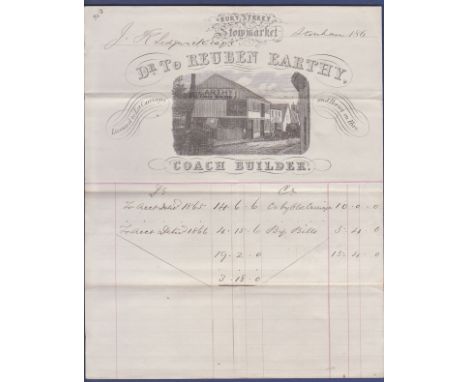 BURY STREET
Stowmarket
Stonham 186
Dr. To REUBEN EARTHY,
Licensed to Let Carriages and Horses on Hire
EARTHY
COACH BUILDER.
Dr Cr
To acct Deliv'd 1865 14 . 6 . 6 Cr by Old Carriage 10 . 0 . 0
To acct Deliv'd 1866 4 . 15 . 6 By Bills 5 . 4 . 0
19 . 2 . 0 15 . 4 . 0
3 . 18 . 0